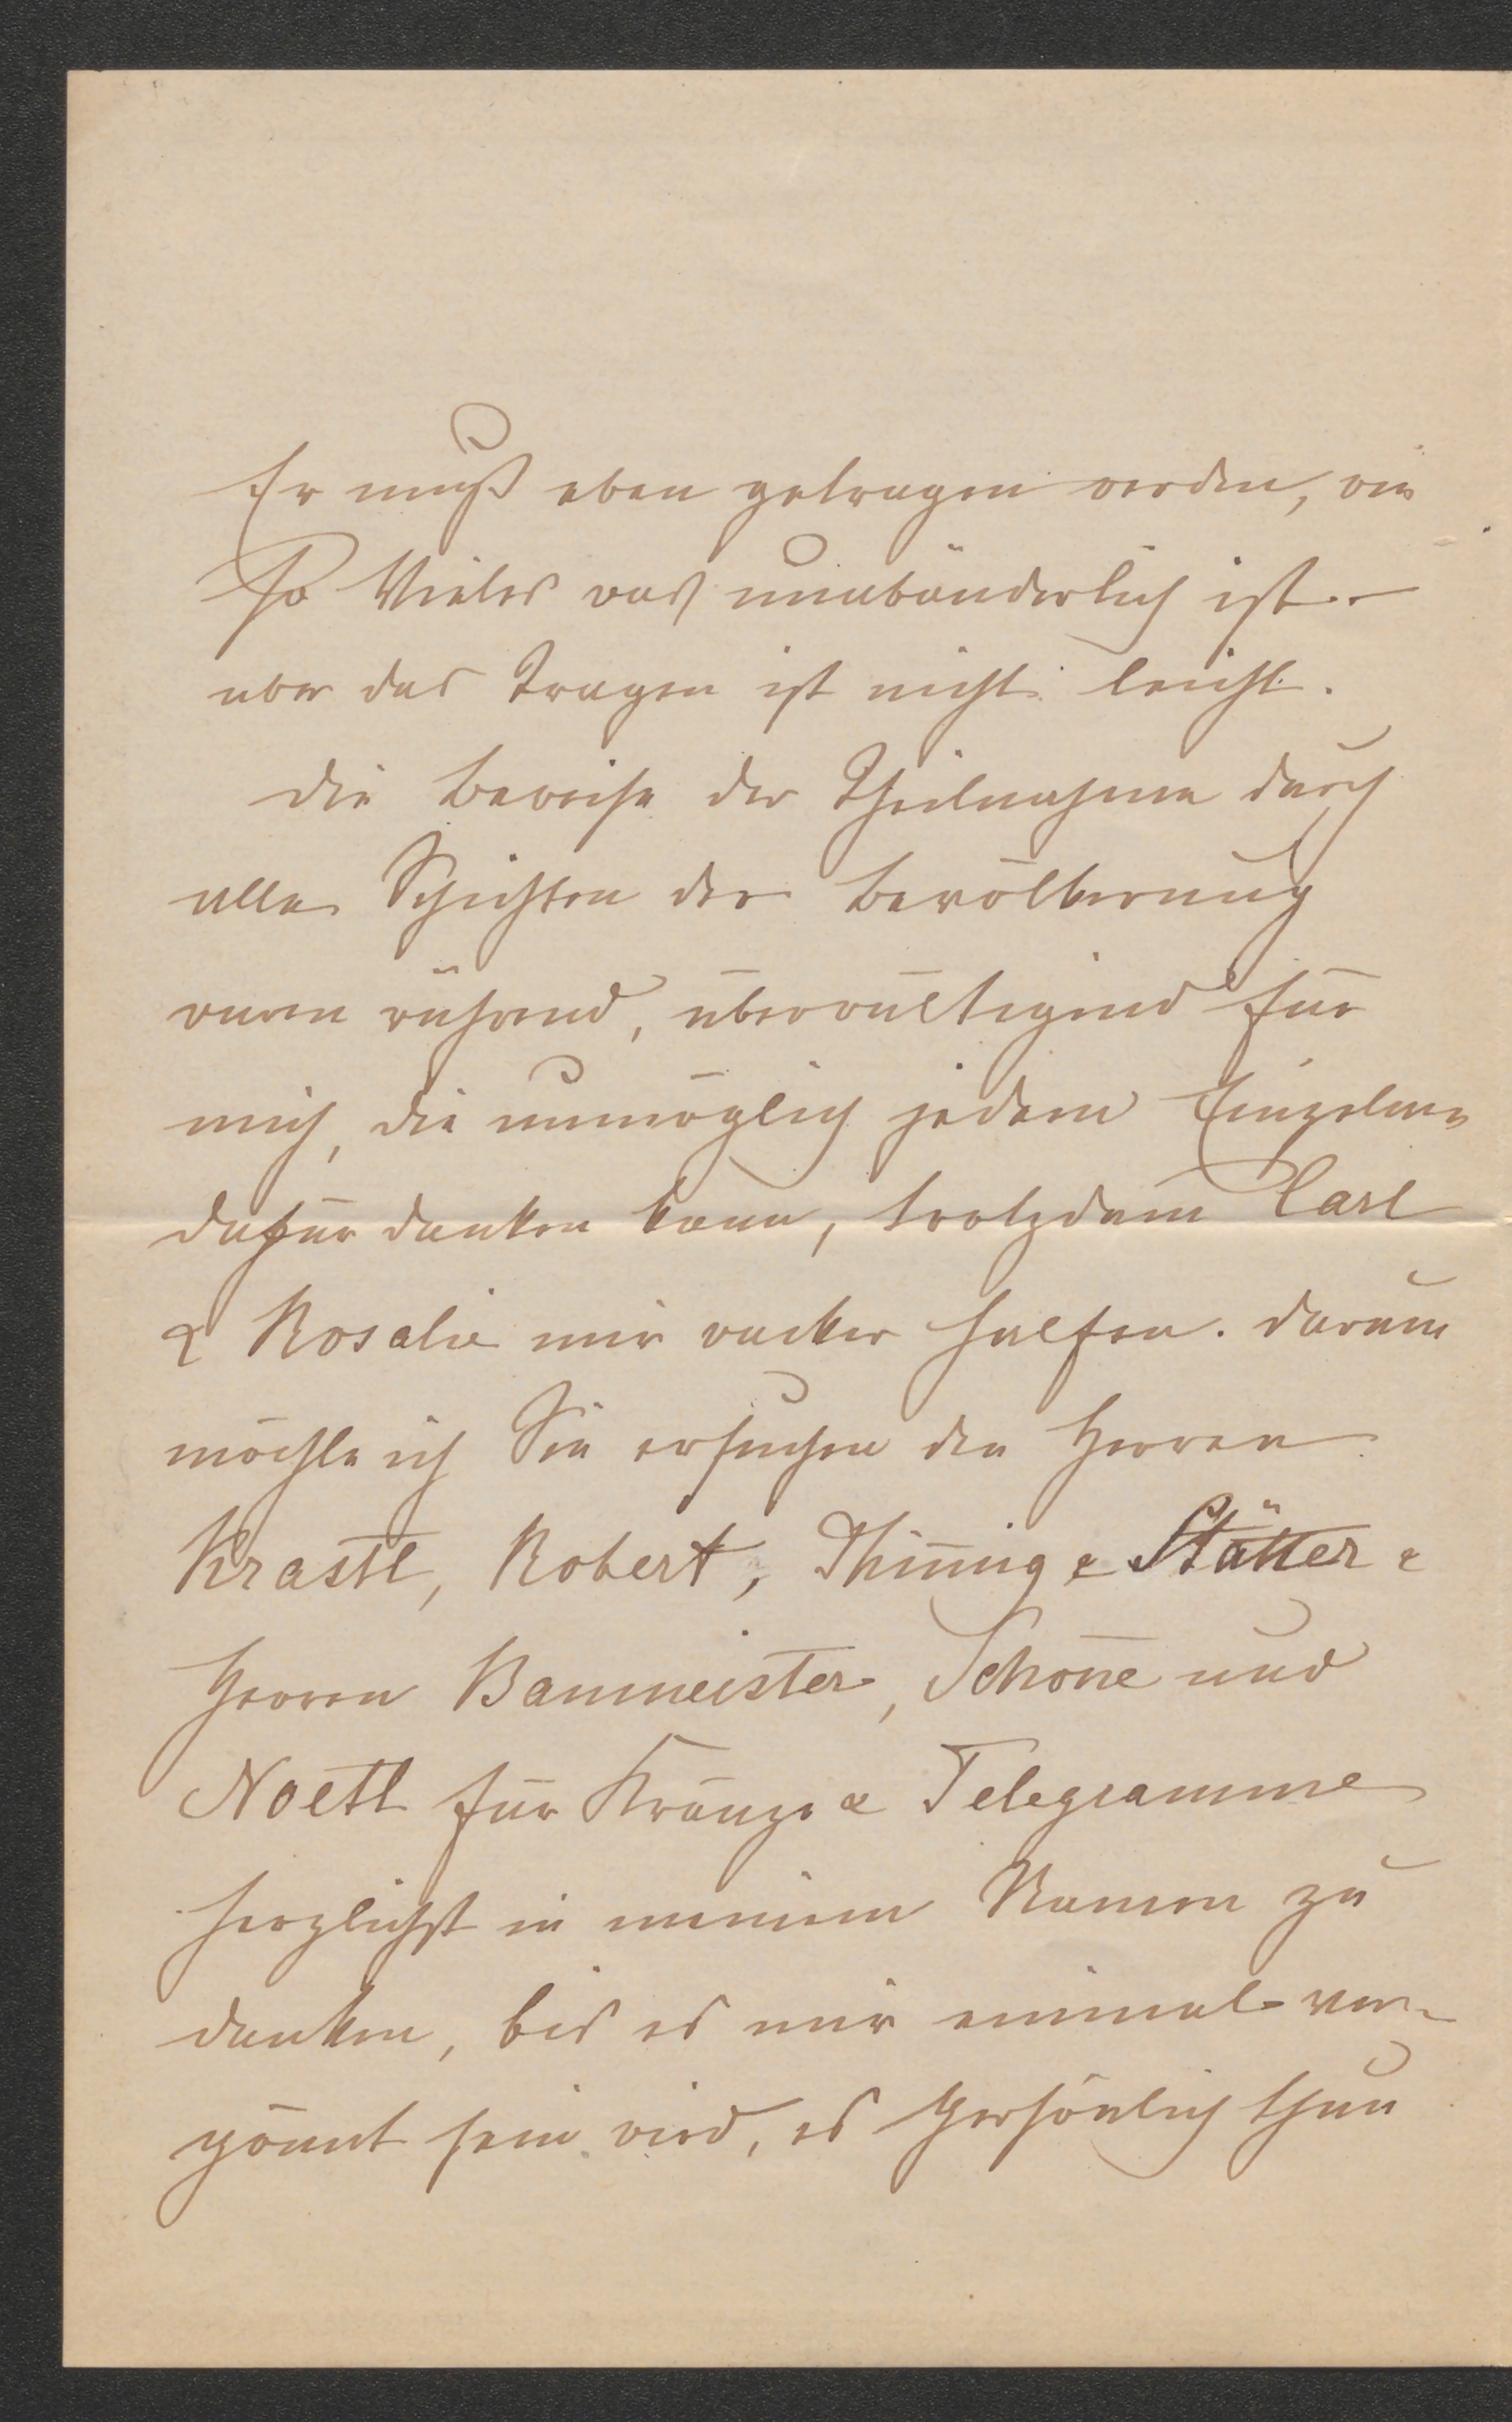 Er muß eben getragen werden, wie
So Vieles was unabänderlich ist –
aber das Tragen ist nicht leicht.
Die Beweise der Theilnahme durch
alle Schichten der Bevölkerung
waren rührend, überwältigend für
mich, die unmöglich jedem Einzelnen
dafür danken kann, trotzdem Carl
& Rosalie mir wacker halfen. Darum
möchte ich Sie ersuchen den Herren
Krastl, Robert, Thimig & Stätter &
Herren Baumeister, Schöne und
Noetl für Kränze & Telegramme
herzlichst in meinem Namen zu
danken, bis es mir einmal ver-
gönnt sein wird, es persönlich thun